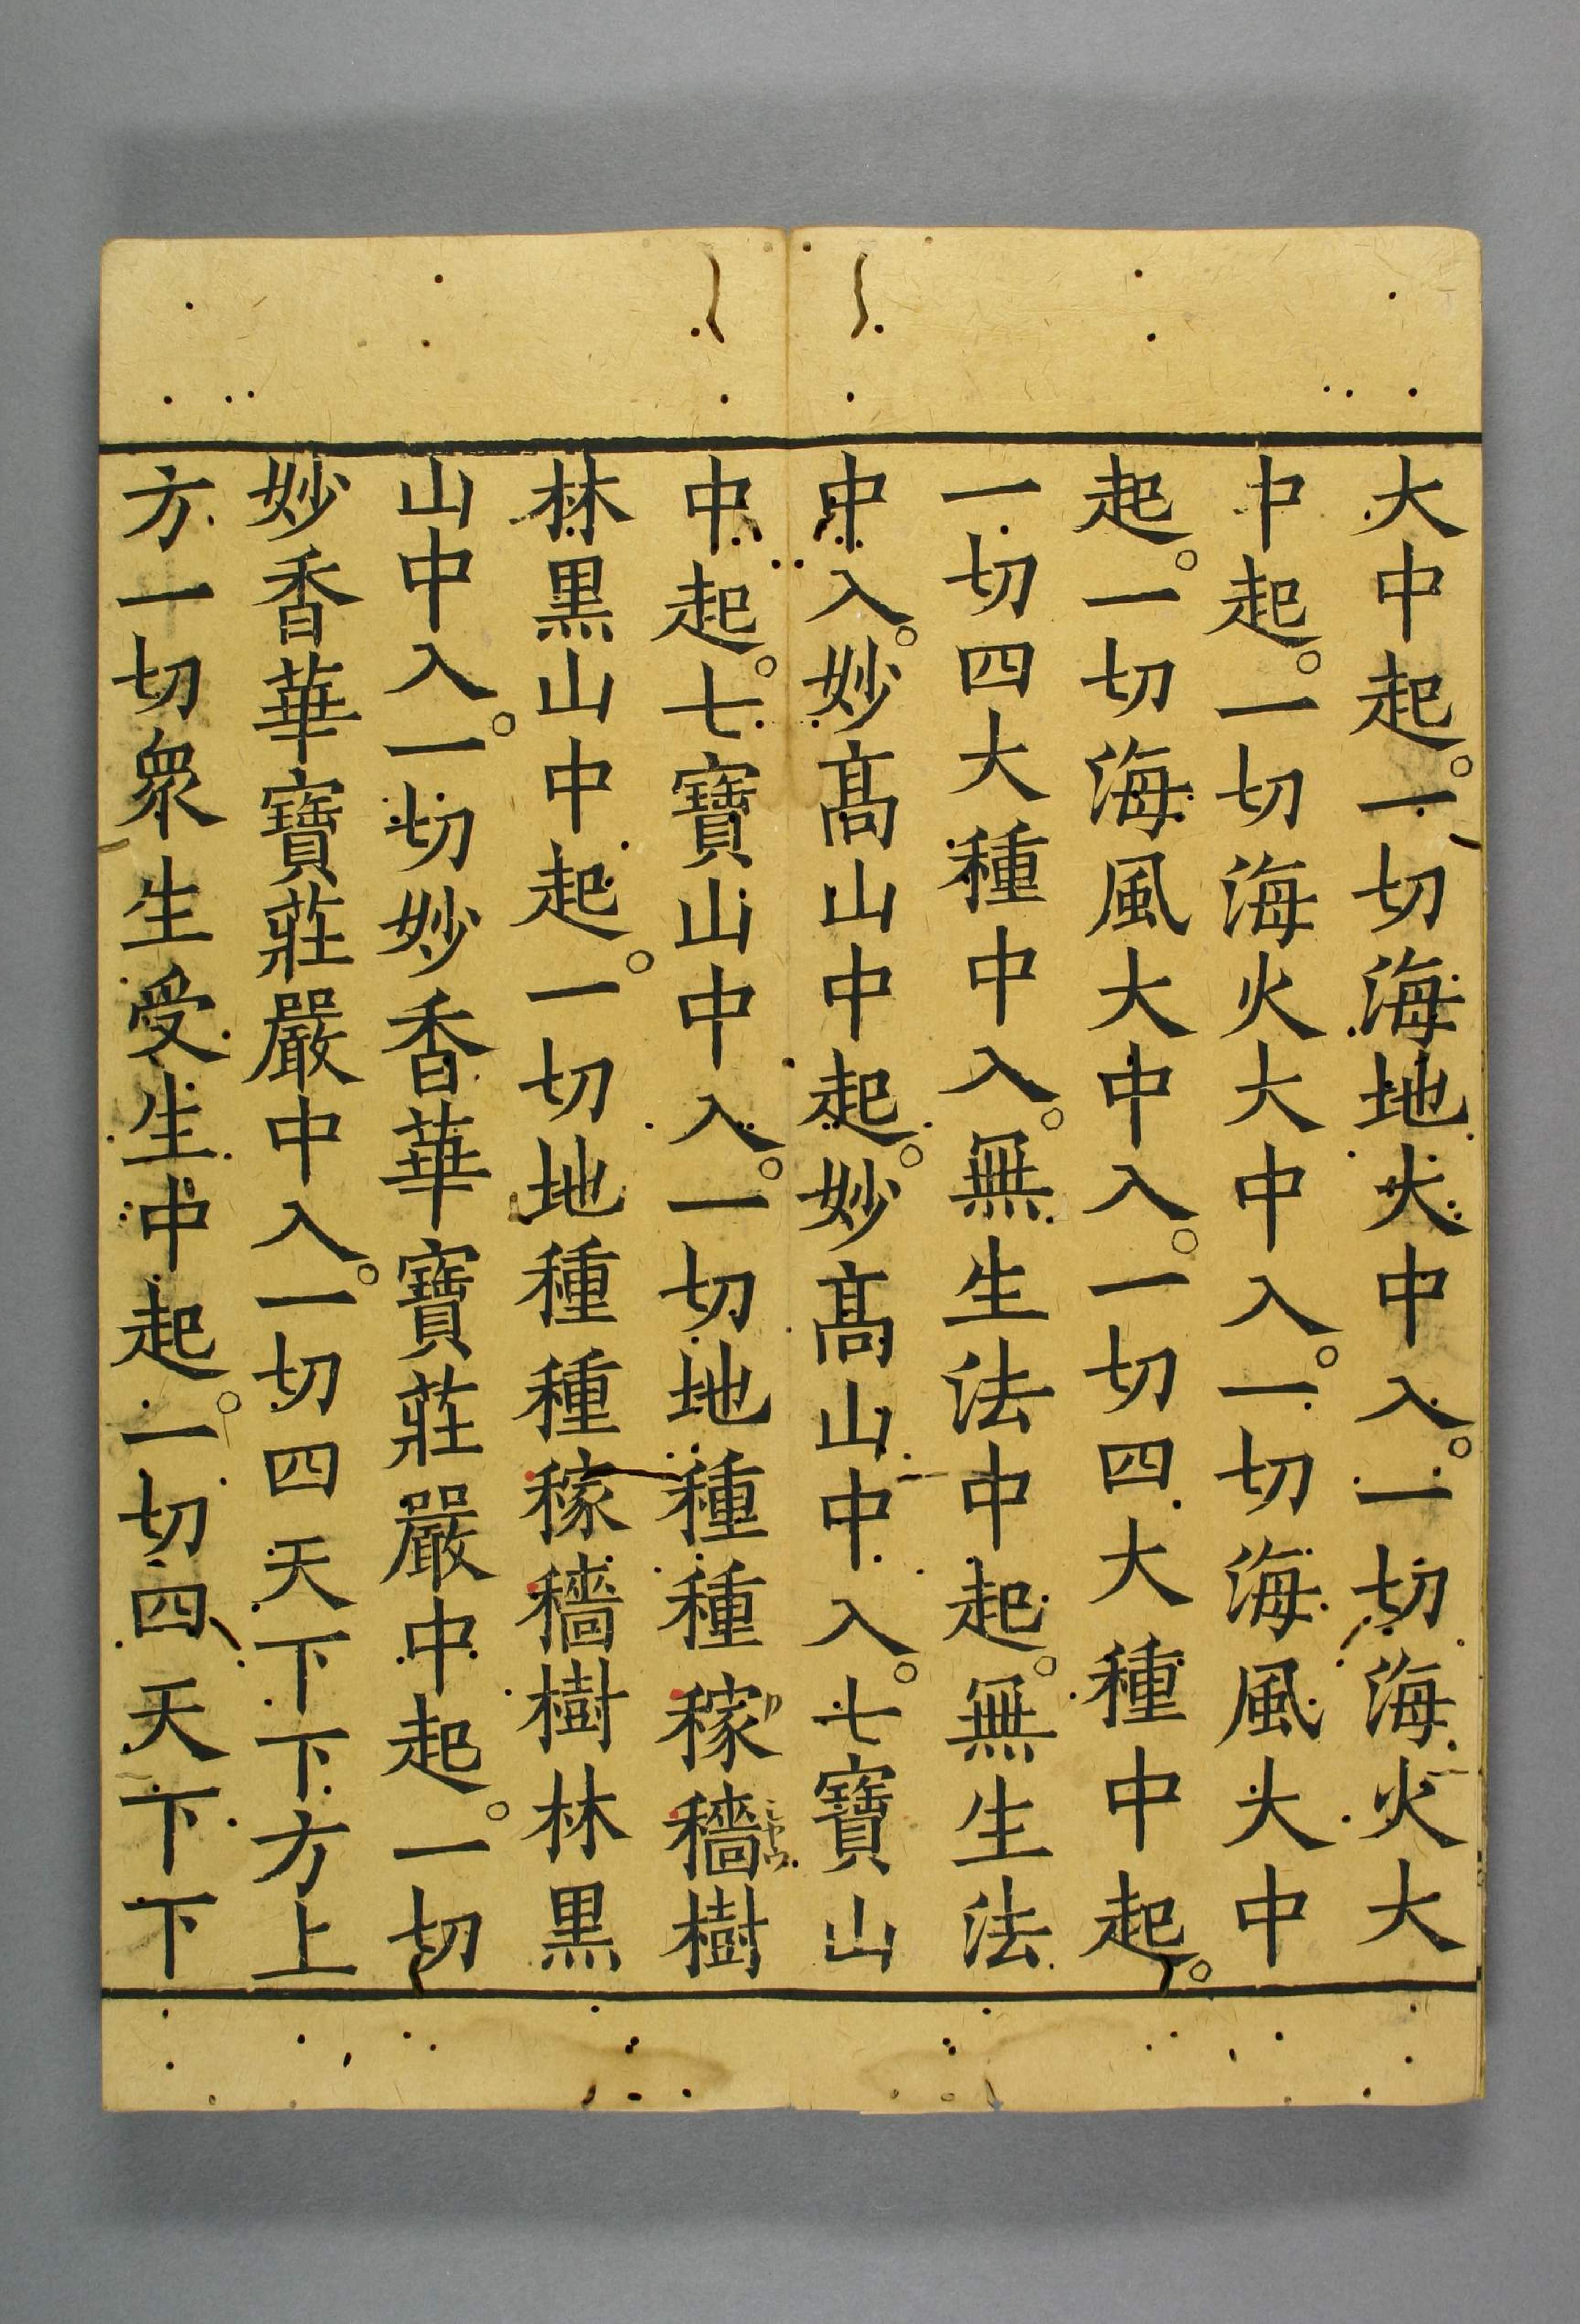 大中起。一切海地大中入。一切海火大
中起。一切海火大中入。一切海風大中
起。一切海風大中入。一切四大種中起。
一切四大種中入。無生法中起。無生法
中入。妙高山中起。妙高山中入。七寶山
中起。七寶山中入。一切地種種稼穡樹
林黒山中起。一切地種種稼穡樹林黒
山中入。一切妙香華寶莊嚴中起。一切
妙香華寶莊嚴中入。一切四天下下方上
方一切衆生受生中起。一切四天下下